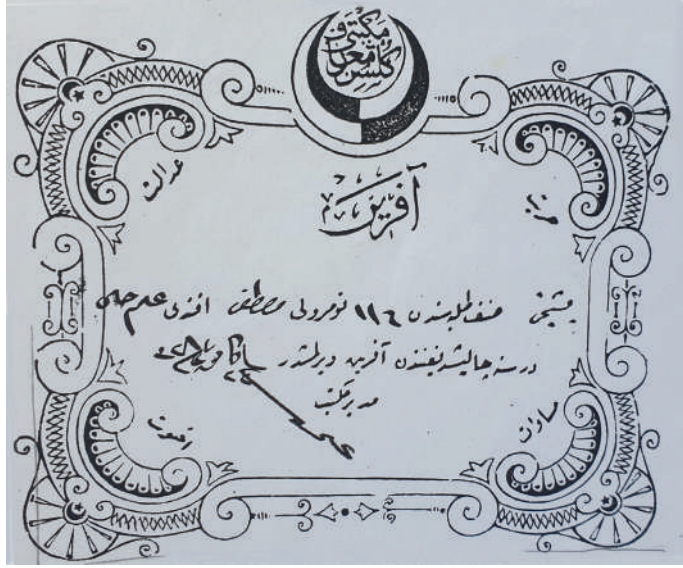 گلشن معارف مكتبى
حريت
عدالت
آفرين
بشنجى صنف طلبه‌سندن ١١٤ نومرولى مصطفى افندى علم حال
درسنه چاليشديغندن آفرين ويرلمشدر
مدير مكتب
مساوات
اخوت